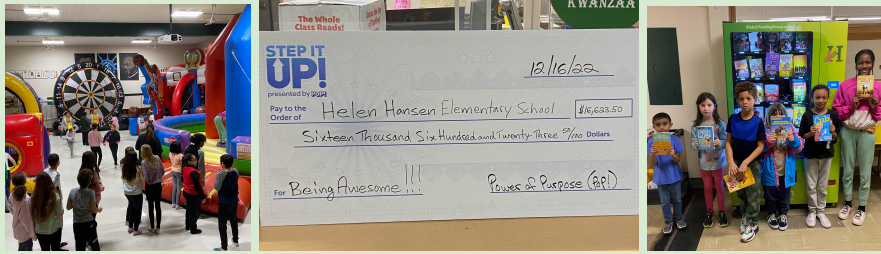 The Whole
Class Reads!
KWANZAA
STEP IT
UP!
presented by PoP!
12/16/22
Pay to the
Order of
Helen Hansen Elementary School
$16,623.50
Sixteen Thousand Six Hundred and Twenty-Three 50/100 Dollars
For Being Awesome!!!
Power of Purpose (PoP!)
20